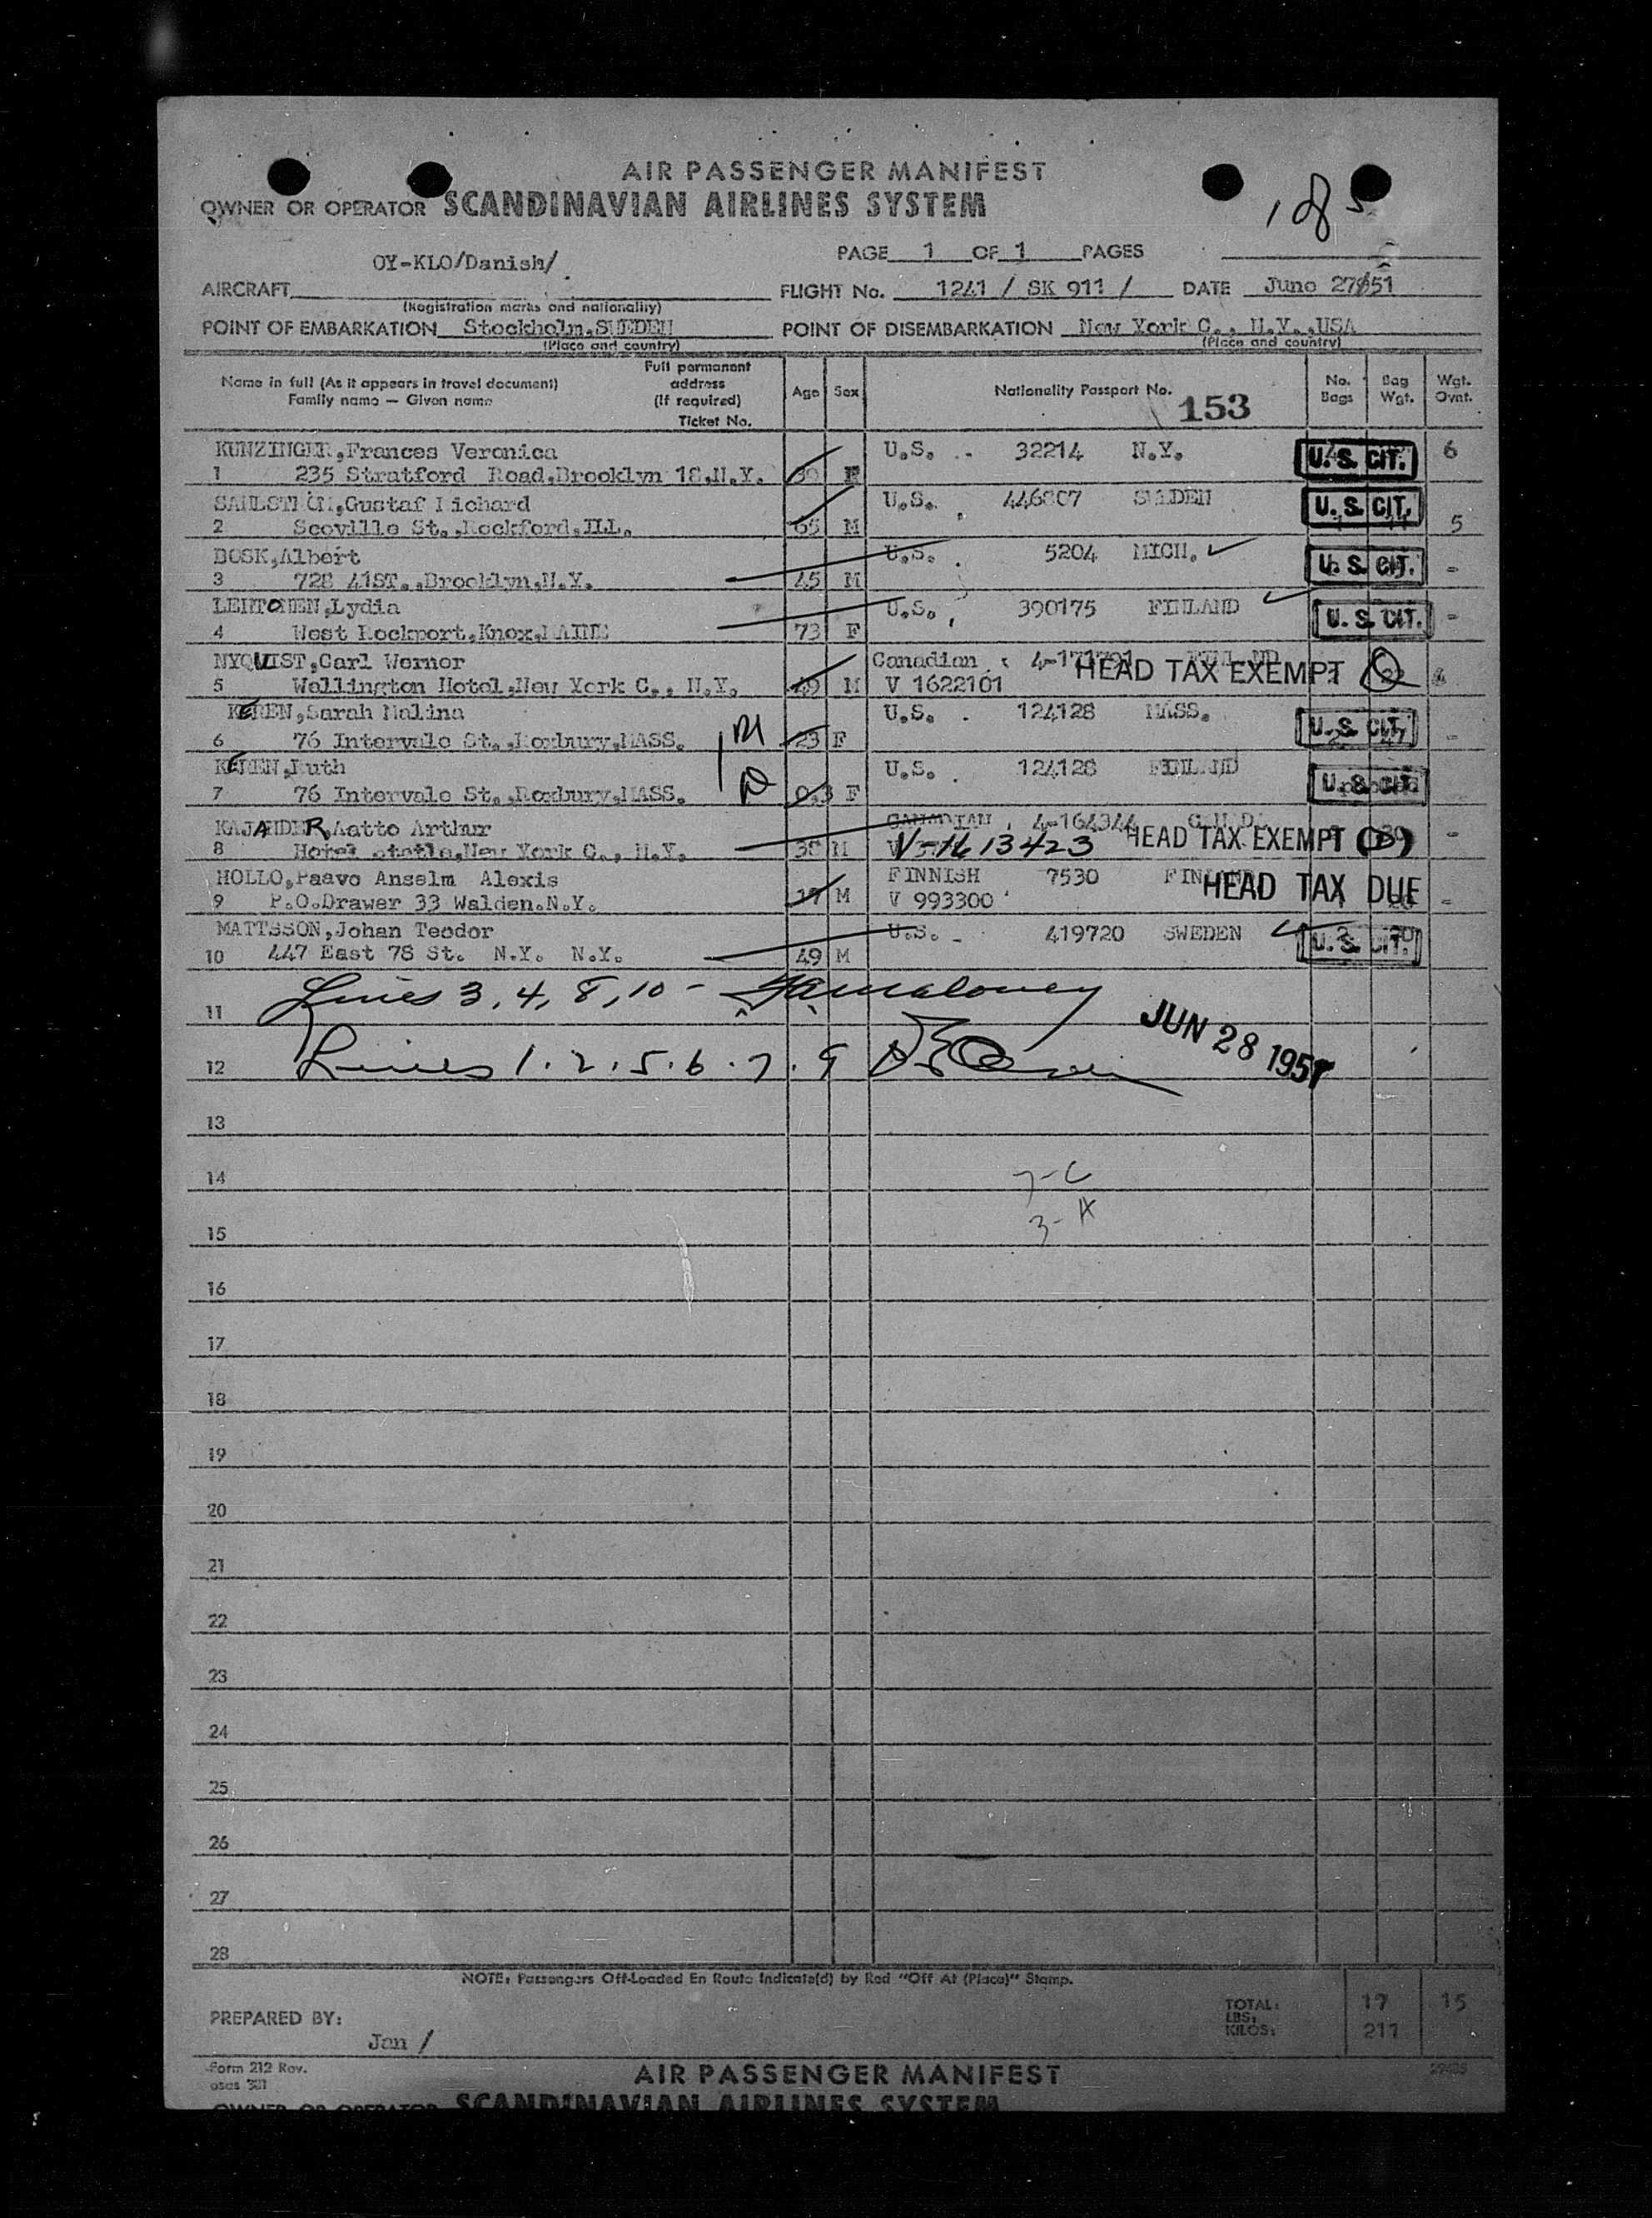 AIR PASSENGER MANIFEST
OWNER OR OPERATOR SCANDINAVIAN AIRLINES SYSTEM
1 of 5
PAGE 1 OF 1 PAGES
OY-KLO/Danish/
AIRCRAFT
FLIGHT No. 1241 / SK 911 / DATE June 27/51
(Registration marks and nationality)
POINT OF EMBARKATION Stockholm,SWEDEN POINT OF DISEMBARKATION New York C., N.Y.,USA
(Place and country) (Place and country)
Name in full (As it appears in travel document)
Family name — Given name
Full permanent
address
(If required)
Ticket No.
Age Sex Nationality Passport No. 153 No. Bags Bag Wgt. Wgt. Ovnt.
KUNZINGER,Frances Veronica U.S. 32214 N.Y. U. S. CIT. 6
1 235 Stratford Road,Brooklyn 18,N.Y. F
SAHLSTROM,Gustaf Richard U.S. 446807 SWEDEN U. S. CIT.
2 Scoville St.,Rockford,ILL. 65 M 5
BOSK,Albert U.S. 5204 MICH. U. S. CIT.
3 728 41ST.,Brooklyn,N.Y. 45 M -
LEHTONEN,Lydia U.S. 390175 FINLAND U. S. CIT. -
4 West Rockport,Knox,MAINE 73 F
NYQUIST,Carl Werner Canadian HEAD TAX EXEMPT
5 Wellington Hotel,New York C., N.Y. 49 M V 1622101
KEREN,Sarah Malina U.S. 124128 MASS. U. S. CIT.
6 76 Intervale St.,Roxbury,MASS. 23 F -
KEREN,Ruth U.S. 124128 FINLAND U. S. CIT.
7 76 Intervale St.,Roxbury,MASS. 0,3 F
KAJANDER,Aatto Arthur CANADIAN 4-164344 HEAD TAX EXEMPT -
8 Hotel Statle,New York C., N.Y. 38 M V-1613423
HOLLO,Paavo Anselm Alexis FINNISH 7530 FINLAND HEAD TAX DUE
9 P.O.Drawer 33 Walden.N.Y. 17 M V 993300 -
MATTSSON,Johan Teodor U.S. 419720 SWEDEN U. S. CIT.
10 447 East 78 St. N.Y. N.Y. 49 M
11 Lines 3, 4, 8, 10 - Maloney
JUN 28 1951
12 Lines 1. 2. 5. 6. 7. 9
13
14 7-C
15 3-A
16
17
18
19
20
21
22
23
24
25
26
27
28
NOTE: Passengers Off-Loaded En Route Indicate(d) by Red "Off At (Place)" Stamp.
PREPARED BY:
Jan /
TOTAL: 17 15
LBS:
KILOS: 211
Form 212 Rev.
AIR PASSENGER MANIFEST
OWNER OR OPERATOR SCANDINAVIAN AIRLINES SYSTEM